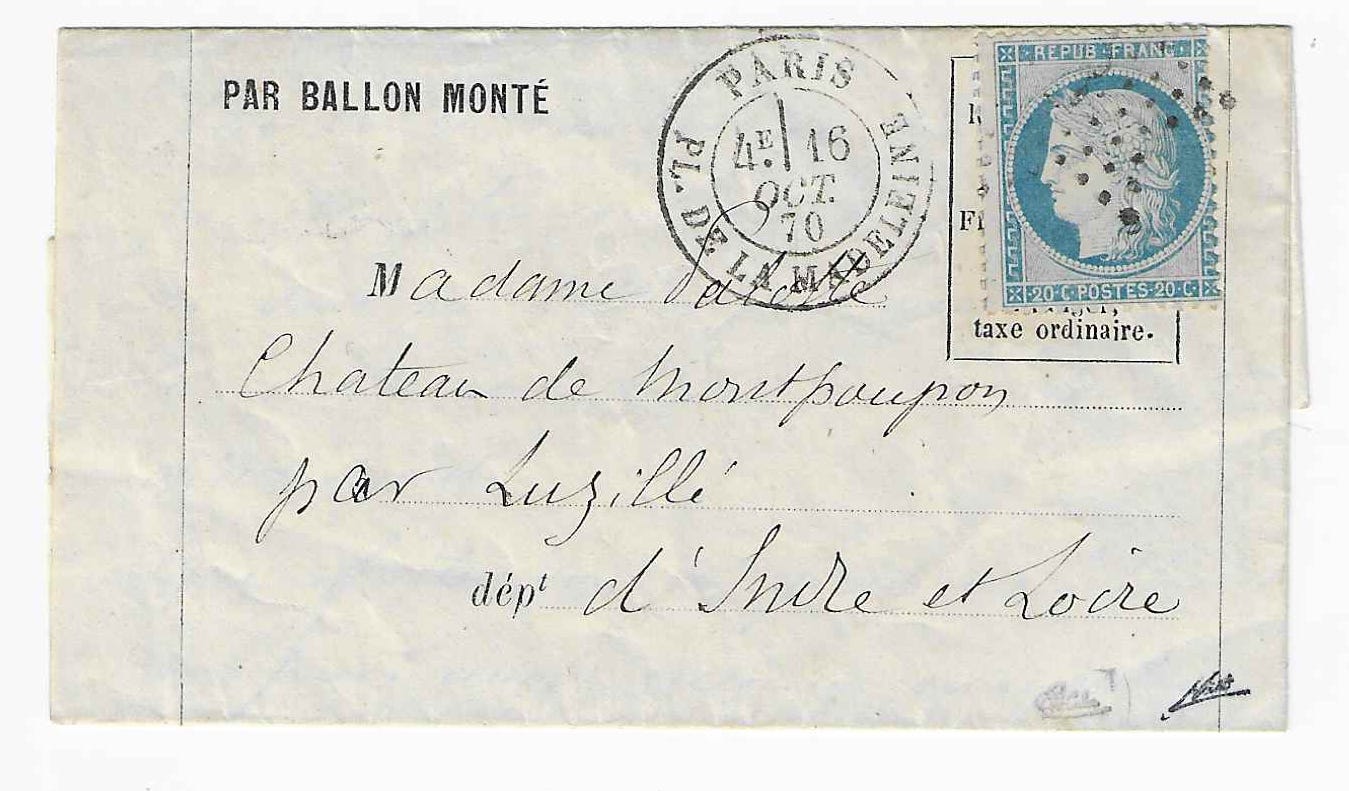 PAR BALLON MONTÉ
PARIS
4E 16
OCT.
70
PL. DE LA MADELEINE
REPUB FRANC
20 C POSTES 20 C
taxe ordinaire.
Madame
Chateau de Montpoupon
par Luzillé
dépt d'Indre et Loire